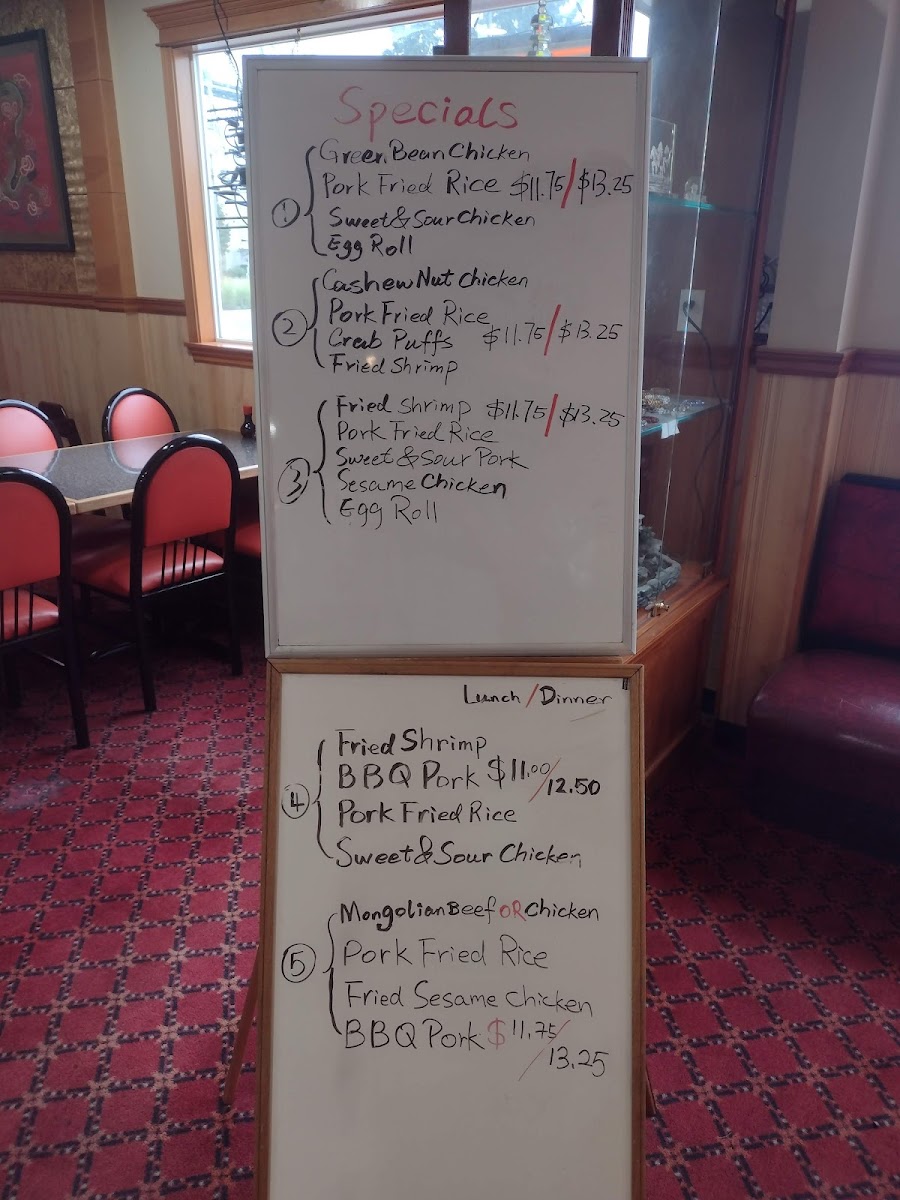 Specials
Green Bean Chicken
Pork Fried Rice $11.75/$13.25
①
Sweet & Sour Chicken
Egg Roll
Cashew Nut Chicken
Pork Fried Rice
②
Crab Puffs $11.75/$13.25
Fried Shrimp
Fried Shrimp $11.75/$13.25
Pork Fried Rice
Sweet & Sour Pork
③
Sesame Chicken
Egg Roll
Lunch/Dinner
Fried Shrimp
BBQ Pork $11.00/12.50
④
Pork Fried Rice
Sweet & Sour Chicken
Mongolian Beef OR Chicken
⑤
Pork Fried Rice
Fried Sesame Chicken
BBQ Pork $11.75/
13.25